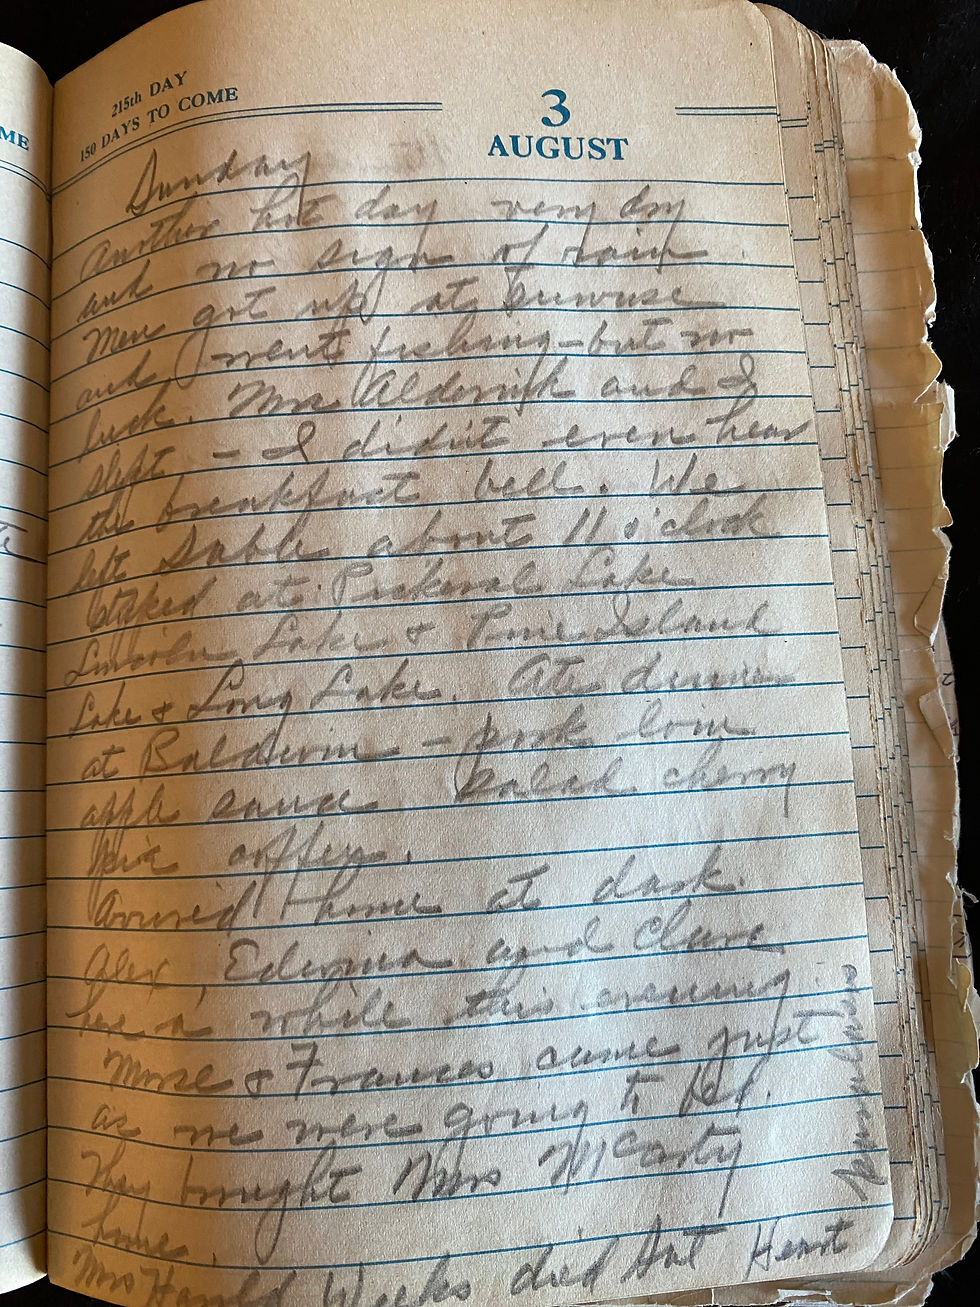 ME
215th DAY
150 DAYS TO COME
3
AUGUST
Sunday
Another hot day very dry
and no sign of rain
Men got up at sunrise
and went fishing - but no
luck. Mrs Alderink and I
slept - I didn't even hear
the breakfast bell. We
left Sable about 11 o'clock
at Pickeral Lake
Lincoln Lake & Pine Island
Lake & Long Lake. Ate dinner
at Baldwin - pork loin
apple sauce salad cherry
pie coffee.
Arrived home at dark.
Alex, Edwina and Clare
here a while this evening.
Morse & Frances came just
as we were going to bed.
They brought Mrs McCarty
home.
Mrs Harold Weeks died Sat Heart